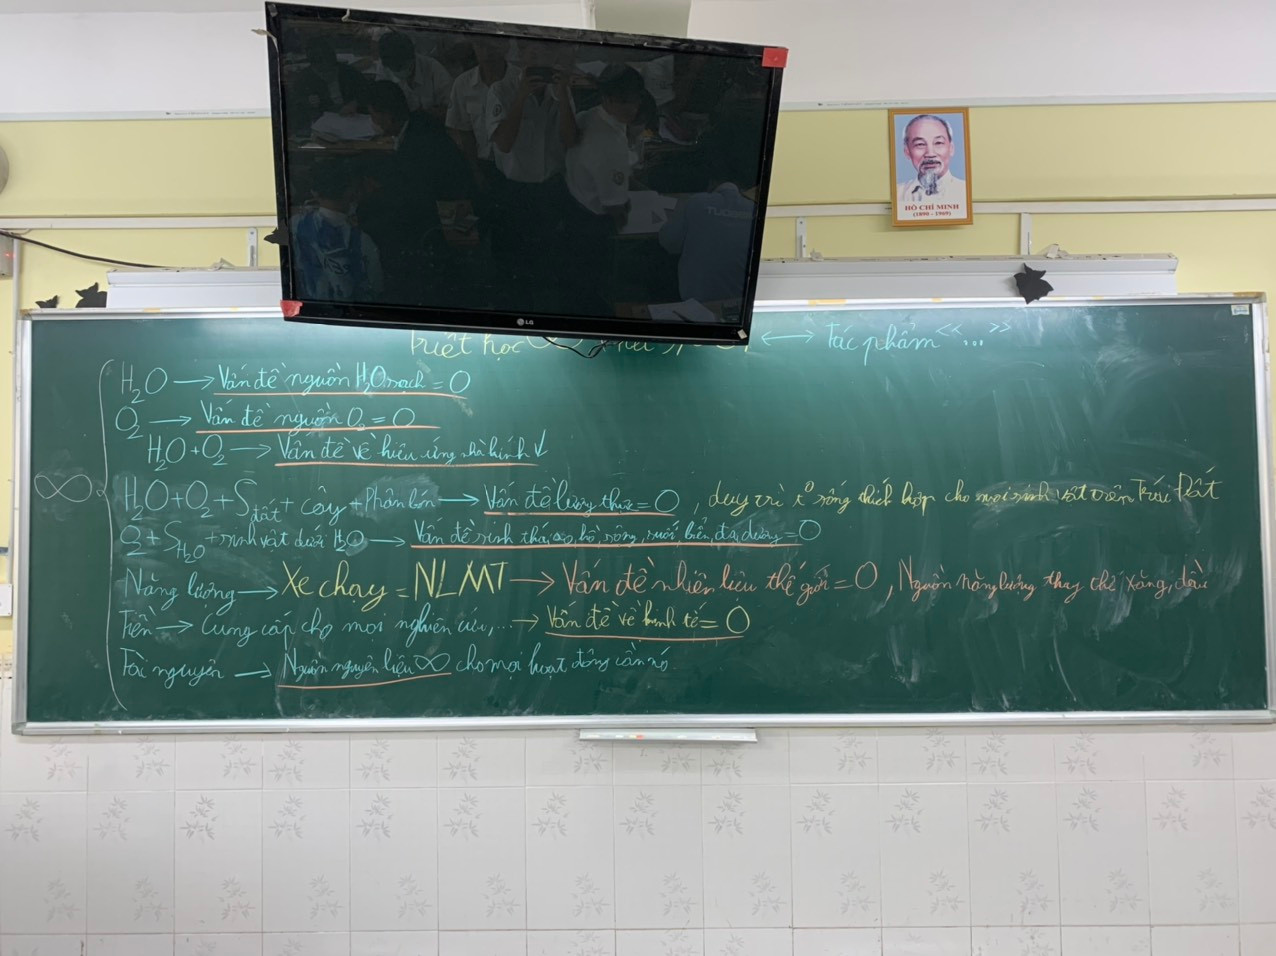 HỒ CHÍ MINH
(1890 - 1969)
LG
Triết học ⟷ Tác phẩm << ... >>
∞
H₂O → Vấn đề nguồn H₂O sạch = 0
O₂ → Vấn đề nguồn O₂ = 0
H₂O + O₂ → Vấn đề về hiệu ứng nhà kính ↓
H₂O + O₂ + S đất + cây + Phân bón → Vấn đề lương thực = 0, duy trì t° sống thích hợp cho mọi sinh vật trên Trái Đất
O₂ + S H₂O + sinh vật dưới H₂O → Vấn đề sinh thái ao, hồ, sông, suối, biển, đại dương = 0
Năng lượng → Xe chạy = NLMT → Vấn đề nhiên liệu thế giới = 0, Nguồn năng lượng thay thế xăng, dầu
Tiền → Cung cấp cho mọi nghiên cứu, ... → Vấn đề về kinh tế = 0
Tài nguyên → Nguồn nguyên liệu ∞ cho mọi hoạt động cần nó